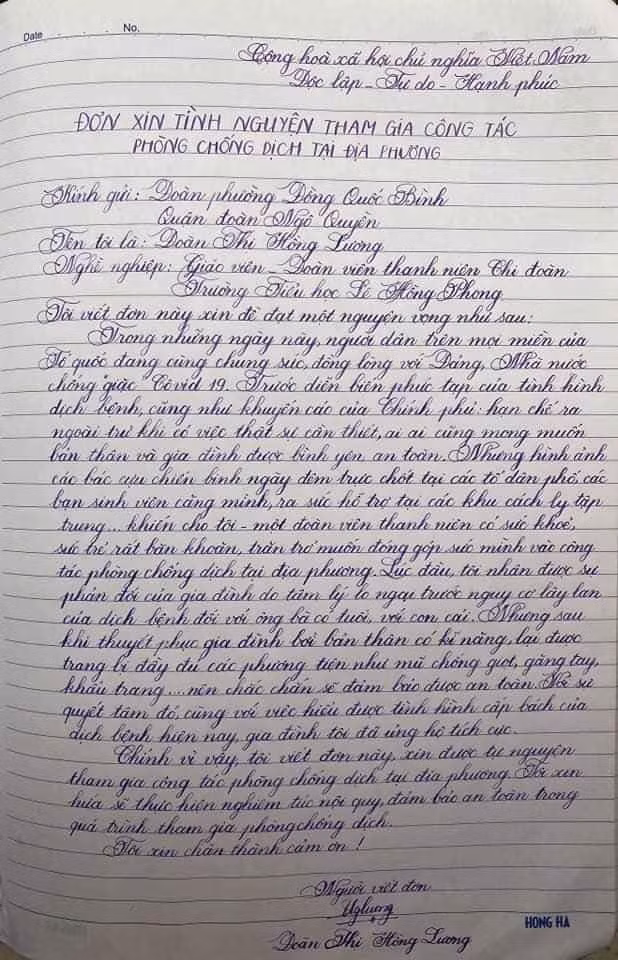 Date No.
Cộng hoà xã hội chủ nghĩa Việt Nam
Độc lập - Tự do - Hạnh phúc
ĐƠN XIN TÌNH NGUYỆN THAM GIA CÔNG TÁC
PHÒNG CHỐNG DỊCH TẠI ĐỊA PHƯƠNG
Kính gửi: Đoàn phường Đồng Quốc Bình
Quận đoàn Ngô Quyền
Tên tôi là: Đoàn Thị Hồng Lương
Nghề nghiệp: Giáo viên - Đoàn viên thanh niên Chi đoàn
Trường Tiểu học Lê Hồng Phong
Tôi viết đơn này xin đề đạt một nguyện vọng như sau:
Trong những ngày này, người dân trên mọi miền của
Tổ quốc đang cùng chung sức, đồng lòng với Đảng, Nhà nước
chống giặc Covid 19. Trước diễn biến phức tạp của tình hình
dịch bệnh, cũng như khuyến cáo của Chính phủ: hạn chế ra
ngoài trừ khi có việc thật sự cần thiết, ai ai cũng mong muốn
bản thân và gia đình được bình yên an toàn. Nhưng hình ảnh
các bác cựu chiến binh ngày đêm trực chốt tại các tổ dân phố, các
bạn sinh viên căng mình, ra sức hỗ trợ tại các khu cách ly tập
trung... khiến cho tôi - một đoàn viên thanh niên có sức khoẻ,
sức trẻ rất băn khoăn, trăn trở muốn đóng góp sức mình vào công
tác phòng chống dịch tại địa phương. Lúc đầu, tôi nhận được sự
phản đối của gia đình do tâm lý lo ngại trước nguy cơ lây lan
của dịch bệnh đối với ông bà có tuổi, với con cái. Nhưng sau
khi thuyết phục gia đình bởi bản thân có kĩ năng, lại được
trang bị đầy đủ các phương tiện như mũ chống giọt, găng tay,
khẩu trang... nên chắc chắn sẽ đảm bảo được an toàn. Với sự
quyết tâm đó, cùng với việc hiểu được tình hình cấp bách của
dịch bệnh hiện nay, gia đình tôi đã ủng hộ tích cực.
Chính vì vậy, tôi viết đơn này, xin được tự nguyện
tham gia công tác phòng chống dịch tại địa phương. Tôi xin
hứa sẽ thực hiện nghiêm túc nội quy, đảm bảo an toàn trong
quá trình tham gia phòng chống dịch.
Tôi xin chân thành cảm ơn!
Người viết đơn
Đoàn Thị Hồng Lương
HONG HA